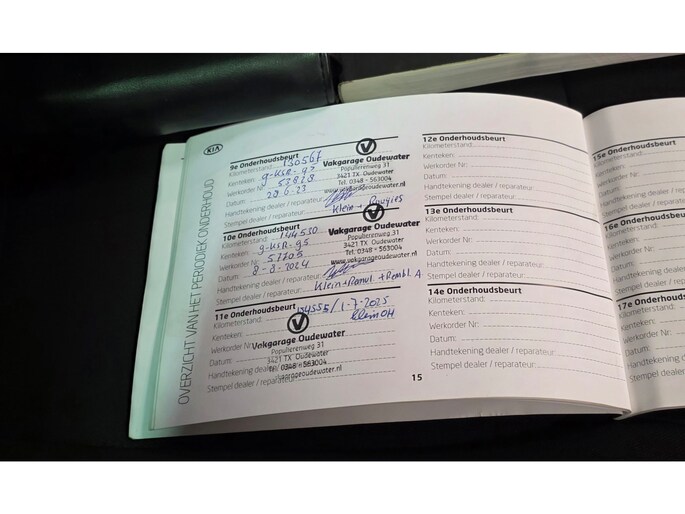 KIA
OVERZICHT VAN HET PERIODIEK ONDERHOUD
9e Onderhoudsbeurt
Kilometerstand: 130567
Kenteken: g-KSR-
Werkorder Nr.:
Datum: 20-6-23
Handtekening dealer / reparateur:
Stempel dealer / reparateur: Klein +
Vakgarage Oudewater
Populierenweg 31
3421 TX Oudewater
Tel. 0348 - 563004
www.vakgarageoudewater.nl
10e Onderhoudsbeurt
Kilometerstand: 144530
Kenteken: g-KSR-
Werkorder Nr.:
Datum: 8-8-2024
Handtekening dealer / reparateur:
Stempel dealer / reparateur: Klein +
Vakgarage Oudewater
Populierenweg 31
3421 TX Oudewater
Tel. 0348 - 563004
www.vakgarageoudewater.nl
11e Onderhoudsbeurt
Kilometerstand: / 1-7-2025
Kenteken: klein OH
Werkorder Nr.:
Datum:
Handtekening dealer / reparateur:
Stempel dealer / reparateur:
Vakgarage Oudewater
Populierenweg 31
3421 TX Oudewater
Tel. 0348 - 563004
www.vakgarageoudewater.nl
12e Onderhoudsbeurt
Kilometerstand:
Kenteken:
Werkorder Nr.:
Datum:
Handtekening dealer / reparateur:
Stempel dealer / reparateur:
13e Onderhoudsbeurt
Kilometerstand:
Kenteken:
Werkorder Nr.:
Datum:
Handtekening dealer / reparateur:
Stempel dealer / reparateur:
14e Onderhoudsbeurt
Kilometerstand:
Kenteken:
Werkorder Nr:
Datum:
Handtekening dealer / reparateur:
Stempel dealer / reparateur:
15
15e Onderhoudsbeurt
Kilometerstand:
Kenteken:
Werkorder Nr.:
Datum:
Handtekening
Stempel dealer
16e Onderhoudsbeurt
Kilometerstand:
Kenteken:
Werkorder Nr.:
Datum:
Handtekening
Stempel dealer
17e Onderhoudsbeurt
Kilometerstand:
Kenteken:
Werkorder Nr.:
Datum:
Handtekening
Stempel dealer